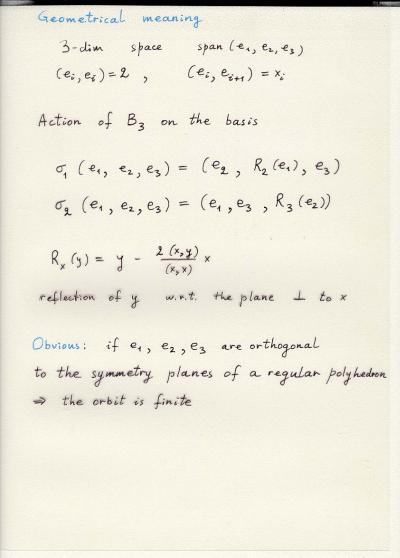 Geometrical meaning
3-dim space span (e₁, e₂, e₃)
(eᵢ, eᵢ) = 2 , (eᵢ, eᵢ₊₁) = xᵢ
Action of B₃ on the basis
σ₁ (e₁, e₂, e₃) = (e₂ , R₂(e₁), e₃)
σ₂ (e₁, e₂, e₃) = (e₁, e₃ , R₃(e₂))
Rₓ(y) = y - 2(x,y)/(x,x) x
reflection of y w.r.t. the plane ⊥ to x
Obvious: if e₁, e₂, e₃ are orthogonal
to the symmetry planes of a regular polyhedron
⇒ the orbit is finite